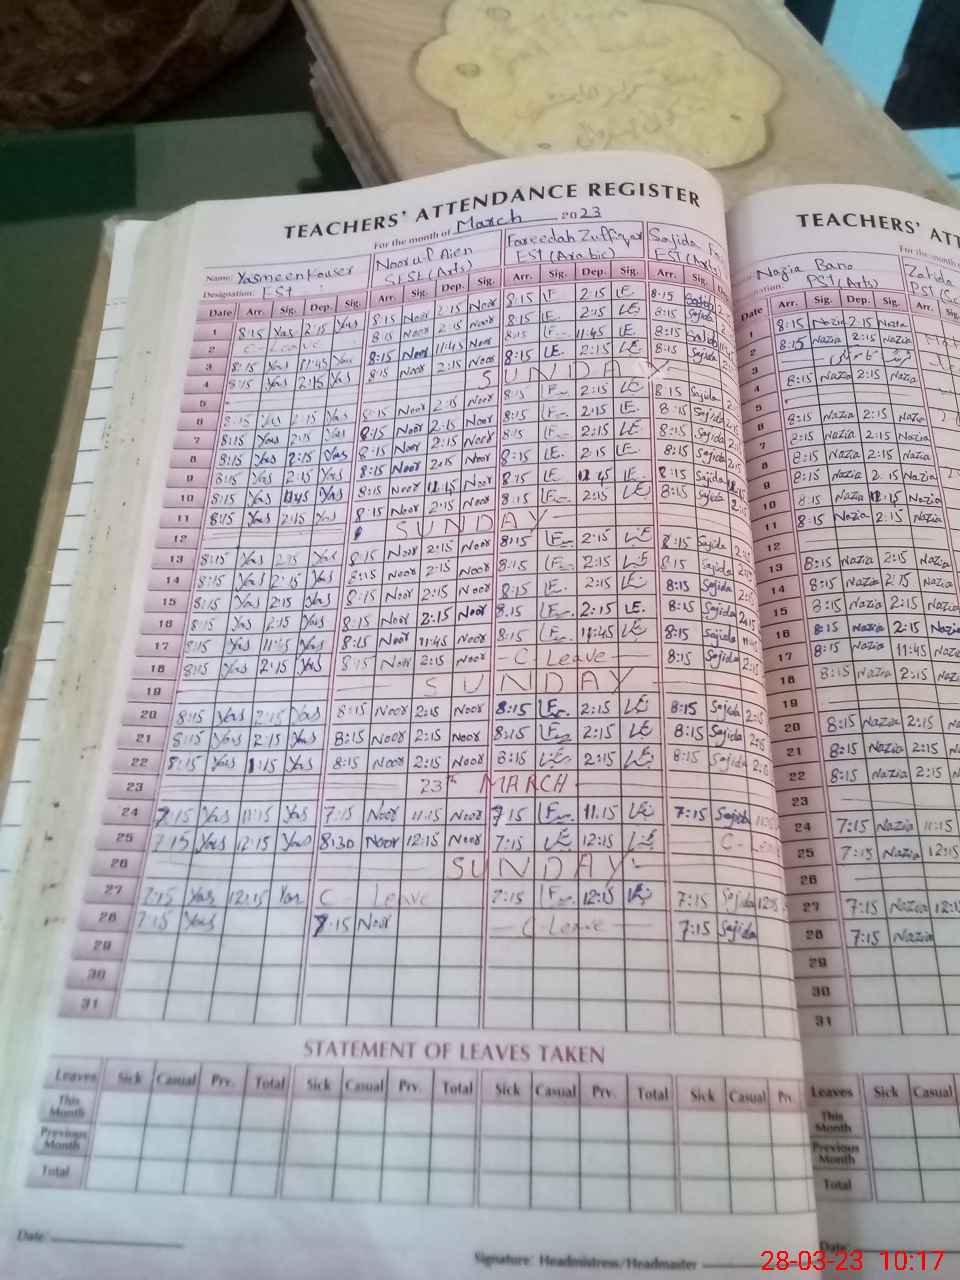 TEACHERS' ATTENDANCE REGISTER
For the month of March 2023
Name: Yasmeen Kouser Noor ul Aien Fareedah Zulfiqar Sajida
Designation: EST SESE (Arts) EST (Arabic) EST (Arts)
Date Arr. Sig. Dep. Sig. Arr. Sig. Dep. Sig. Arr. Sig. Dep. Sig. Arr. Sig.
1 8:15 Yas 2:15 Yas 8:15 Noor 2:15 Noor 8:15 2:15 8:15 Sajida
2 C-Leave 8:15 Noor 2:15 Noor 8:15 2:15 8:15 Sajida
3 8:15 Yas 11:45 Yas 8:15 Noor 11:45 Noor 8:15 11:45 8:15 Sajida
4 8:15 Yas 2:15 Yas 8:15 Noor 2:15 Noor 8:15 2:15 8:15 Sajida
5 SUNDAY
6 8:15 Yas 2:15 Yas 8:15 Noor 2:15 Noor 8:15 2:15 8:15 Sajida
7 8:15 Yas 2:15 Yas 8:15 Noor 2:15 Noor 8:15 2:15 8:15 Sajida
8 8:15 Yas 2:15 Yas 8:15 Noor 2:15 Noor 8:15 2:15 8:15 Sajida
9 8:15 Yas 2:15 Yas 8:15 Noor 2:15 Noor 8:15 2:15 8:15 Sajida
10 8:15 Yas 11:45 Yas 8:15 Noor Noor 8:15 8:15 Sajida
11 8:15 Yas 2:15 Yas 8:15 Noor 2:15 Noor 8:15 2:15 8:15 Sajida
12 SUNDAY
13 8:15 Yas 2:15 Yas 8:15 Noor 2:15 Noor 8:15 2:15 8:15 Sajida
14 8:15 Yas 2:15 Yas 8:15 Noor 2:15 Noor 8:15 2:15 8:15 Sajida
15 8:15 Yas 2:15 Yas 8:15 Noor 2:15 Noor 8:15 2:15 8:15 Sajida
16 8:15 Yas 2:15 Yas 8:15 Noor 2:15 Noor 8:15 2:15 8:15 Sajida
17 8:15 Yas 11:45 Yas 8:15 Noor 11:45 Noor 8:15 11:45 8:15 Sajida
18 8:15 Yas 2:15 Yas 8:15 Noor 2:15 Noor C-Leave 8:15 Sajida
19 SUNDAY
20 8:15 Yas 2:15 Yas 8:15 Noor 2:15 Noor 8:15 2:15 8:15 Sajida 2:15
21 8:15 Yas 2:15 Yas 8:15 Noor 2:15 Noor 8:15 2:15 8:15 Sajida 2:15
22 8:15 Yas 1:15 Yas 8:15 Noor 2:15 Noor 8:15 2:15 8:15 Sajida
23 23th MARCH
24 7:15 Yas 11:15 Yas 7:15 Noor 11:15 Noor 7:15 11:15 7:15 Sajida
25 7:15 Yas 12:15 Yas 8:30 Noor 12:15 Noor 7:15 12:15 C-Leave
26 SUNDAY
27 7:15 Yas 12:15 Yas C Leave 7:15 12:15 7:15 Sajida 12:15
28 7:15 Yas 7:15 Noor C-Leave 7:15 Sajida
29
30
31
STATEMENT OF LEAVES TAKEN
Leaves Sick Casual Prv. Total Sick Casual Prv. Total Sick Casual Prv. Total Sick Casual Prv.
This Month
Previous Month
Total
Date:
Signature: Headmistress/Headmaster
TEACHERS' ATT
For the month
Nazia Bano
PST (Arts) PST
Arr. Sig. Dep. Sig. Arr.
1 8:15 Nazia 2:15 Nazia
2 8:15 Nazia 2:15 Nazia
3
4 8:15 Nazia 2:15 Nazia
5
6 8:15 Nazia 2:15 Nazia
7 8:15 Nazia 2:15 Nazia
8 8:15 Nazia 2:15 Nazia
9 8:15 Nazia 2:15 Nazia
10 8:15 Nazia Nazia
11 8:15 Nazia 2:15 Nazia
12
13 8:15 Nazia 2:15 Nazia
14 8:15 Nazia 2:15 Nazia
15 8:15 Nazia 2:15 Nazia
16 8:15 Nazia 2:15 Nazia
17 8:15 Nazia 11:45 Nazia
18 8:15 Nazia 2:15 Nazia
19
20 8:15 Nazia 2:15
21 8:15 Nazia 2:15
22 8:15 Nazia 2:15
23
24 7:15 Nazia 11:15
25 7:15 Nazia 12:15
26
27 7:15 Nazia
28 7:15 Nazia
29
30
31
Leaves Sick Casual
This Month
Previous Month
Total
Date:
28-03-23 10:17